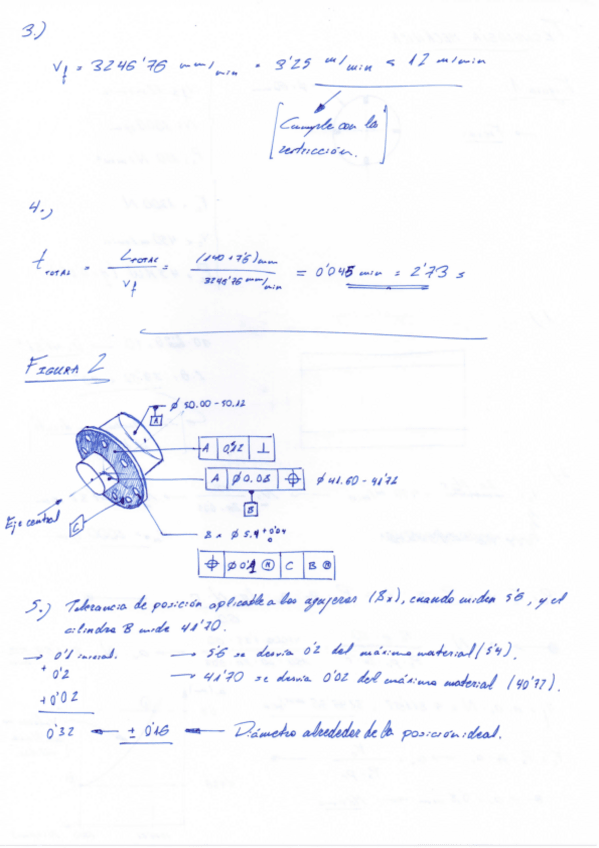 3.)
Vf = 3246'76 mm/min = 3'25 m/min < 12 m/min
[Cumple con la
restricción.]
4.)
t TOTAL = L TOTAL / Vf = (140+7'5) mm / 3246'76 mm/min = 0'045 min = 2'73 s
FIGURA 2
ø 50.00 - 50.12
A
A 0,22 ⊥
A ø0.08 ⌖ ø 41.60 - 41'72
B
Eje central
C
8 x ø 5.4 +0'04 0
⌖ ø0'1 Ⓜ C B Ⓜ
5.) Tolerancia de posición aplicable a los agujeros (8x), cuando miden 5'6, y el
cilindro B mide 41'70.
→ 0'1 inicial. → 5'6 se desvia 0'2 del máximo material (5'4).
+ 0'2 → 41'70 se desvia 0'02 del máximo material (40'72).
+0'02
0'32 ← ± 0'16 ← Diámetro alrededor de la posición ideal.